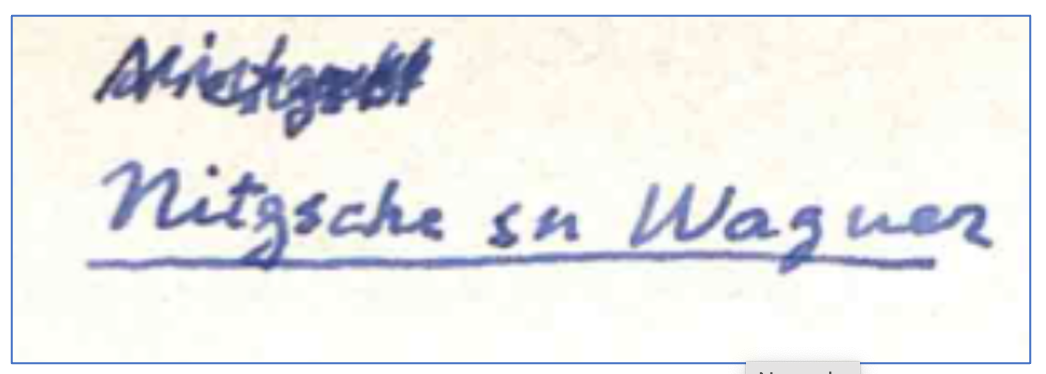 Nitzsche sn Wagner